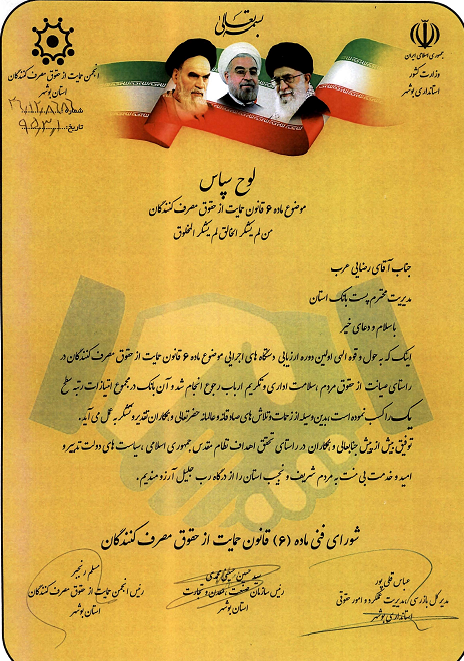 بسمه تعالی
جمهوری اسلامی ایران
وزارت کشور
استانداری بوشهر
انجمن حمایت از حقوق مصرف کنندگان
استان بوشهر
شماره:
تاریخ: ۹۵،۳،۱
لوح سپاس
موضوع ماده ۶ قانون حمایت از حقوق مصرف کنندگان
من لم یشکر الخالق لم یشکر المخلوق
جناب آقای رضایی عرب
مدیریت محترم پست بانک استان
با سلام و دعای خیر
اینک که به حول و قوه الهی اولین دوره ارزیابی دستگاه های اجرایی موضوع ماده ۶ قانون حمایت از حقوق مصرف کنندگان در
راستای صیانت از حقوق مردم ،سلامت اداری و تکریم ارباب رجوع انجام شد و آن بانک در مجموع امتیازات رتبه سطح
یک را کسب نموده است ،بدین وسیله از زحمات و تلاش های صادقانه و عالمانه حضرتعالی و همکاران تقدیر و تشکر به عمل می آید.
توفیق بیش از پیش جنابعالی و همکاران در راستای تحقق اهداف نظام مقدس جمهوری اسلامی ،سیاست های دولت تدبیر و
امید و خدمت بی منت به مردم شریف و نجیب استان را از درگاه رب جلیل آرزومندیم.
شورای فنی ماده (۶) قانون حمایت از حقوق مصرف کنندگان
عباس قلی پور
مدیر کل بازرسی ،مدیریت عملکرد و امور حقوقی
استانداری بوشهر
سید حسین
رئیس سازمان صنعت ،معدن و تجارت
استان بوشهر
مسلم رنجبر
رئیس انجمن حمایت از حقوق مصرف کنندگان
استان بوشهر